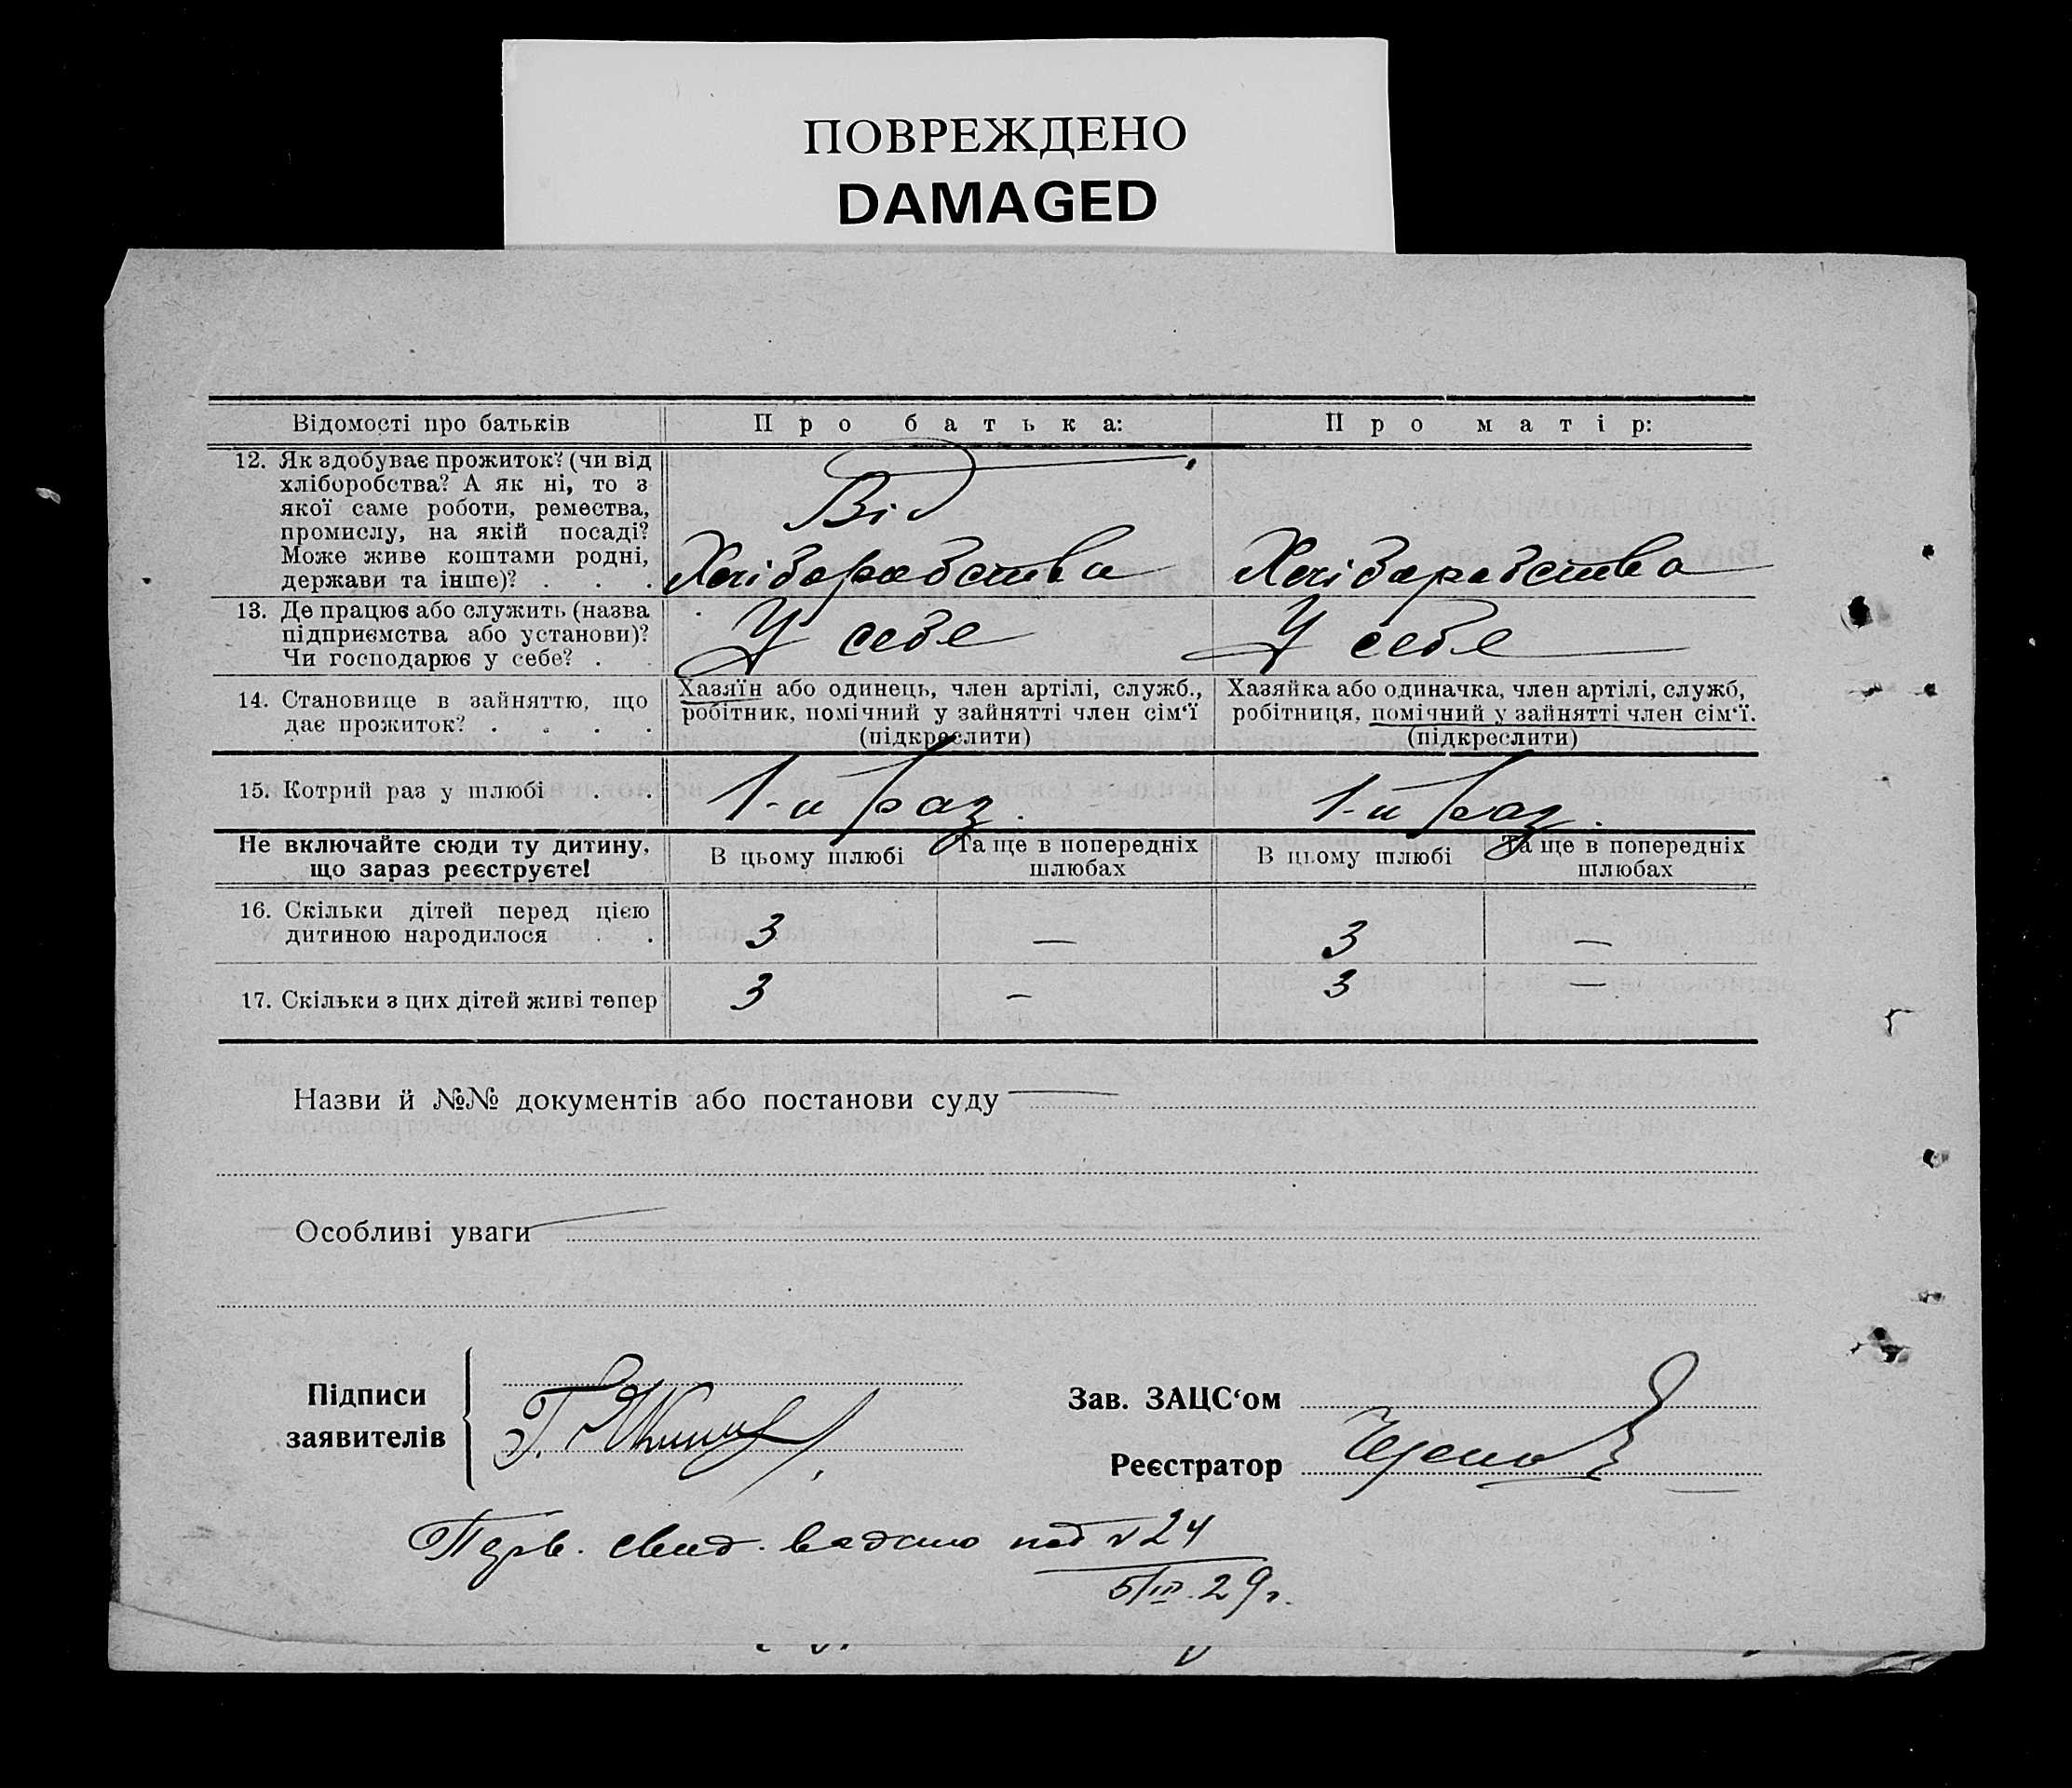 ПОВРЕЖДЕНО
DAMAGED
Відомості про батьків
Про батька:
Про матір:
12. Як здобуває прожиток? (чи від
хліборобства? А як ні, то з
якої саме роботи, ремества,
промислу, на якій посаді?
Може живе коштами родні,
держави та інше)? . . .
Від
Хліборобства
Хліборобства
13. Де працює або служить (назва
підприємства або установи)?
Чи господарює у себе? . .
У себе
У себе
14. Становище в зайняттю, що
дає прожиток? . . . .
Хазяїн або одинець, член артілі, служб.,
робітник, помічний у зайнятті член сім‘ї
(підкреслити)
Хазяйка або одиначка, член артілі, служб,
робітниця, помічний у зайнятті член сім‘ї.
(підкреслити)
15. Котрий раз у шлюбі . .
1-й раз.
1-й раз.
Не включайте сюди ту дитину,
що зараз реєструєте!
В цьому шлюбі
Та ще в попередніх
шлюбах
В цьому шлюбі
Та ще в попередніх
шлюбах
16. Скільки дітей перед цією
дитиною народилося . .
3
—
3
—
17. Скільки з цих дітей живі тепер
3
—
3
—
Назви й №№ документів або постанови суду —
Особливі уваги —
Підписи
заявителів
Г.
Зав. ЗАЦС‘ом
Реєстратор
свид. под №24
5/III.29г.